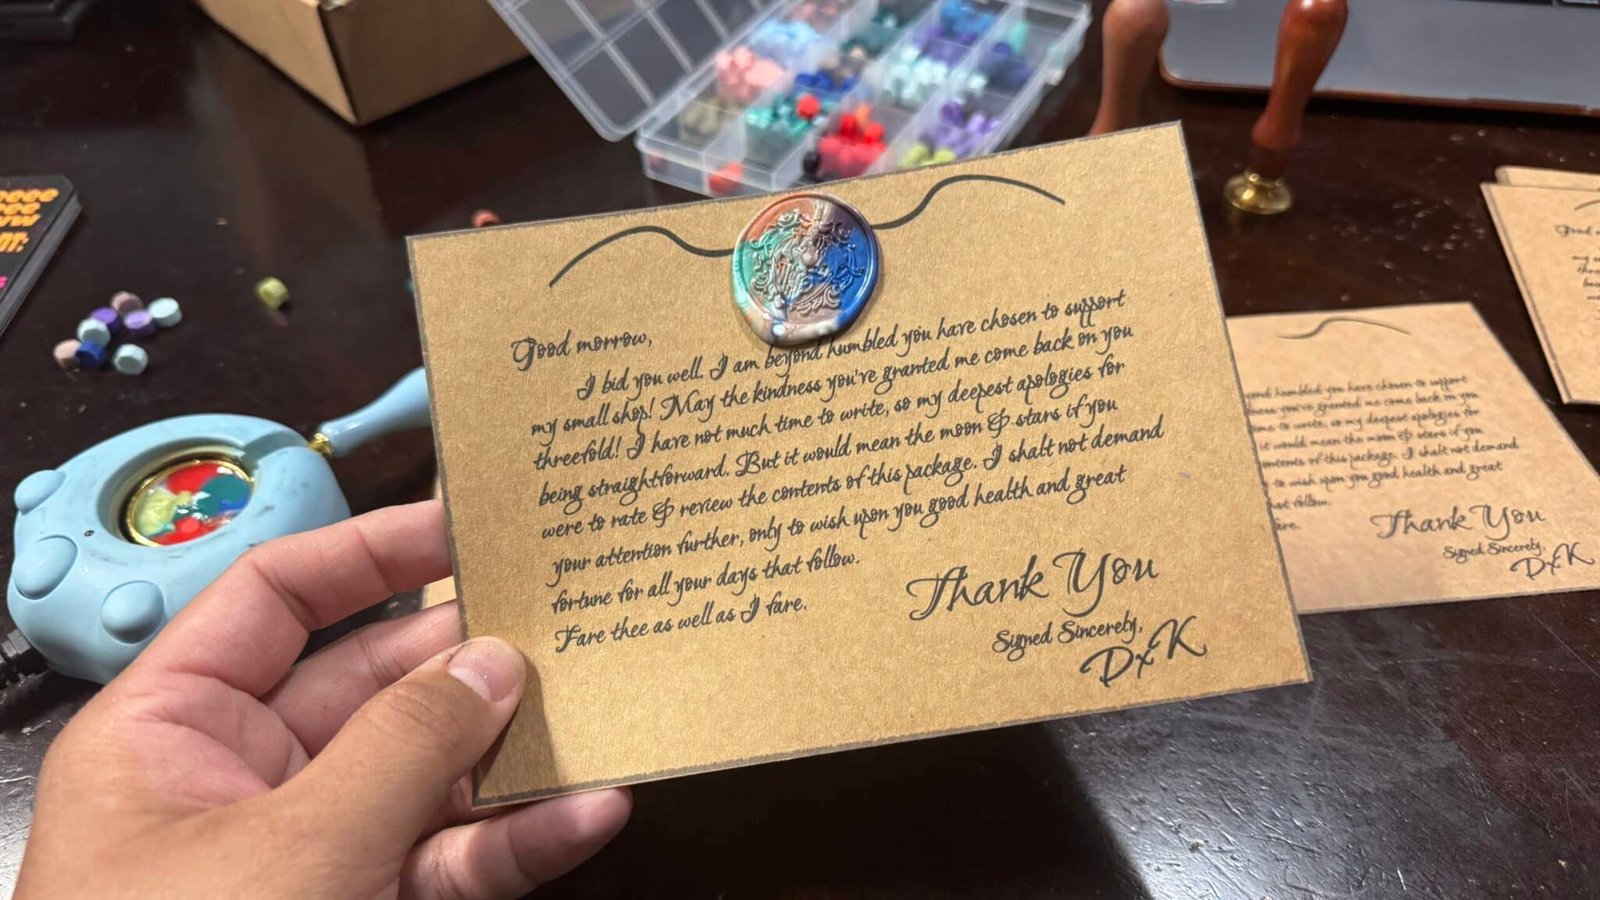 Good morrow,
I bid you well. I am beyond humbled you have chosen to support
my small shop! May the kindness you've granted me come back on you
threefold! I have not much time to write, so my deepest apologies for
being straightforward. But it would mean the moon & stars if you
were to rate & review the contents of this package. I shalt not demand
your attention further, only to wish upon you good health and great
fortune for all your days that follow.
Fare thee as well as I fare.
Thank You
Signed Sincerely,
DxK
humbled you have chosen to support
you've granted me come back on you
to write, so my deepest apologies for
it would mean the moon & stars if you
contents of this package. I shalt not demand
to wish upon you good health and great
that follow.
fare.
Thank You
Signed Sincerely,
DxK
Good
my